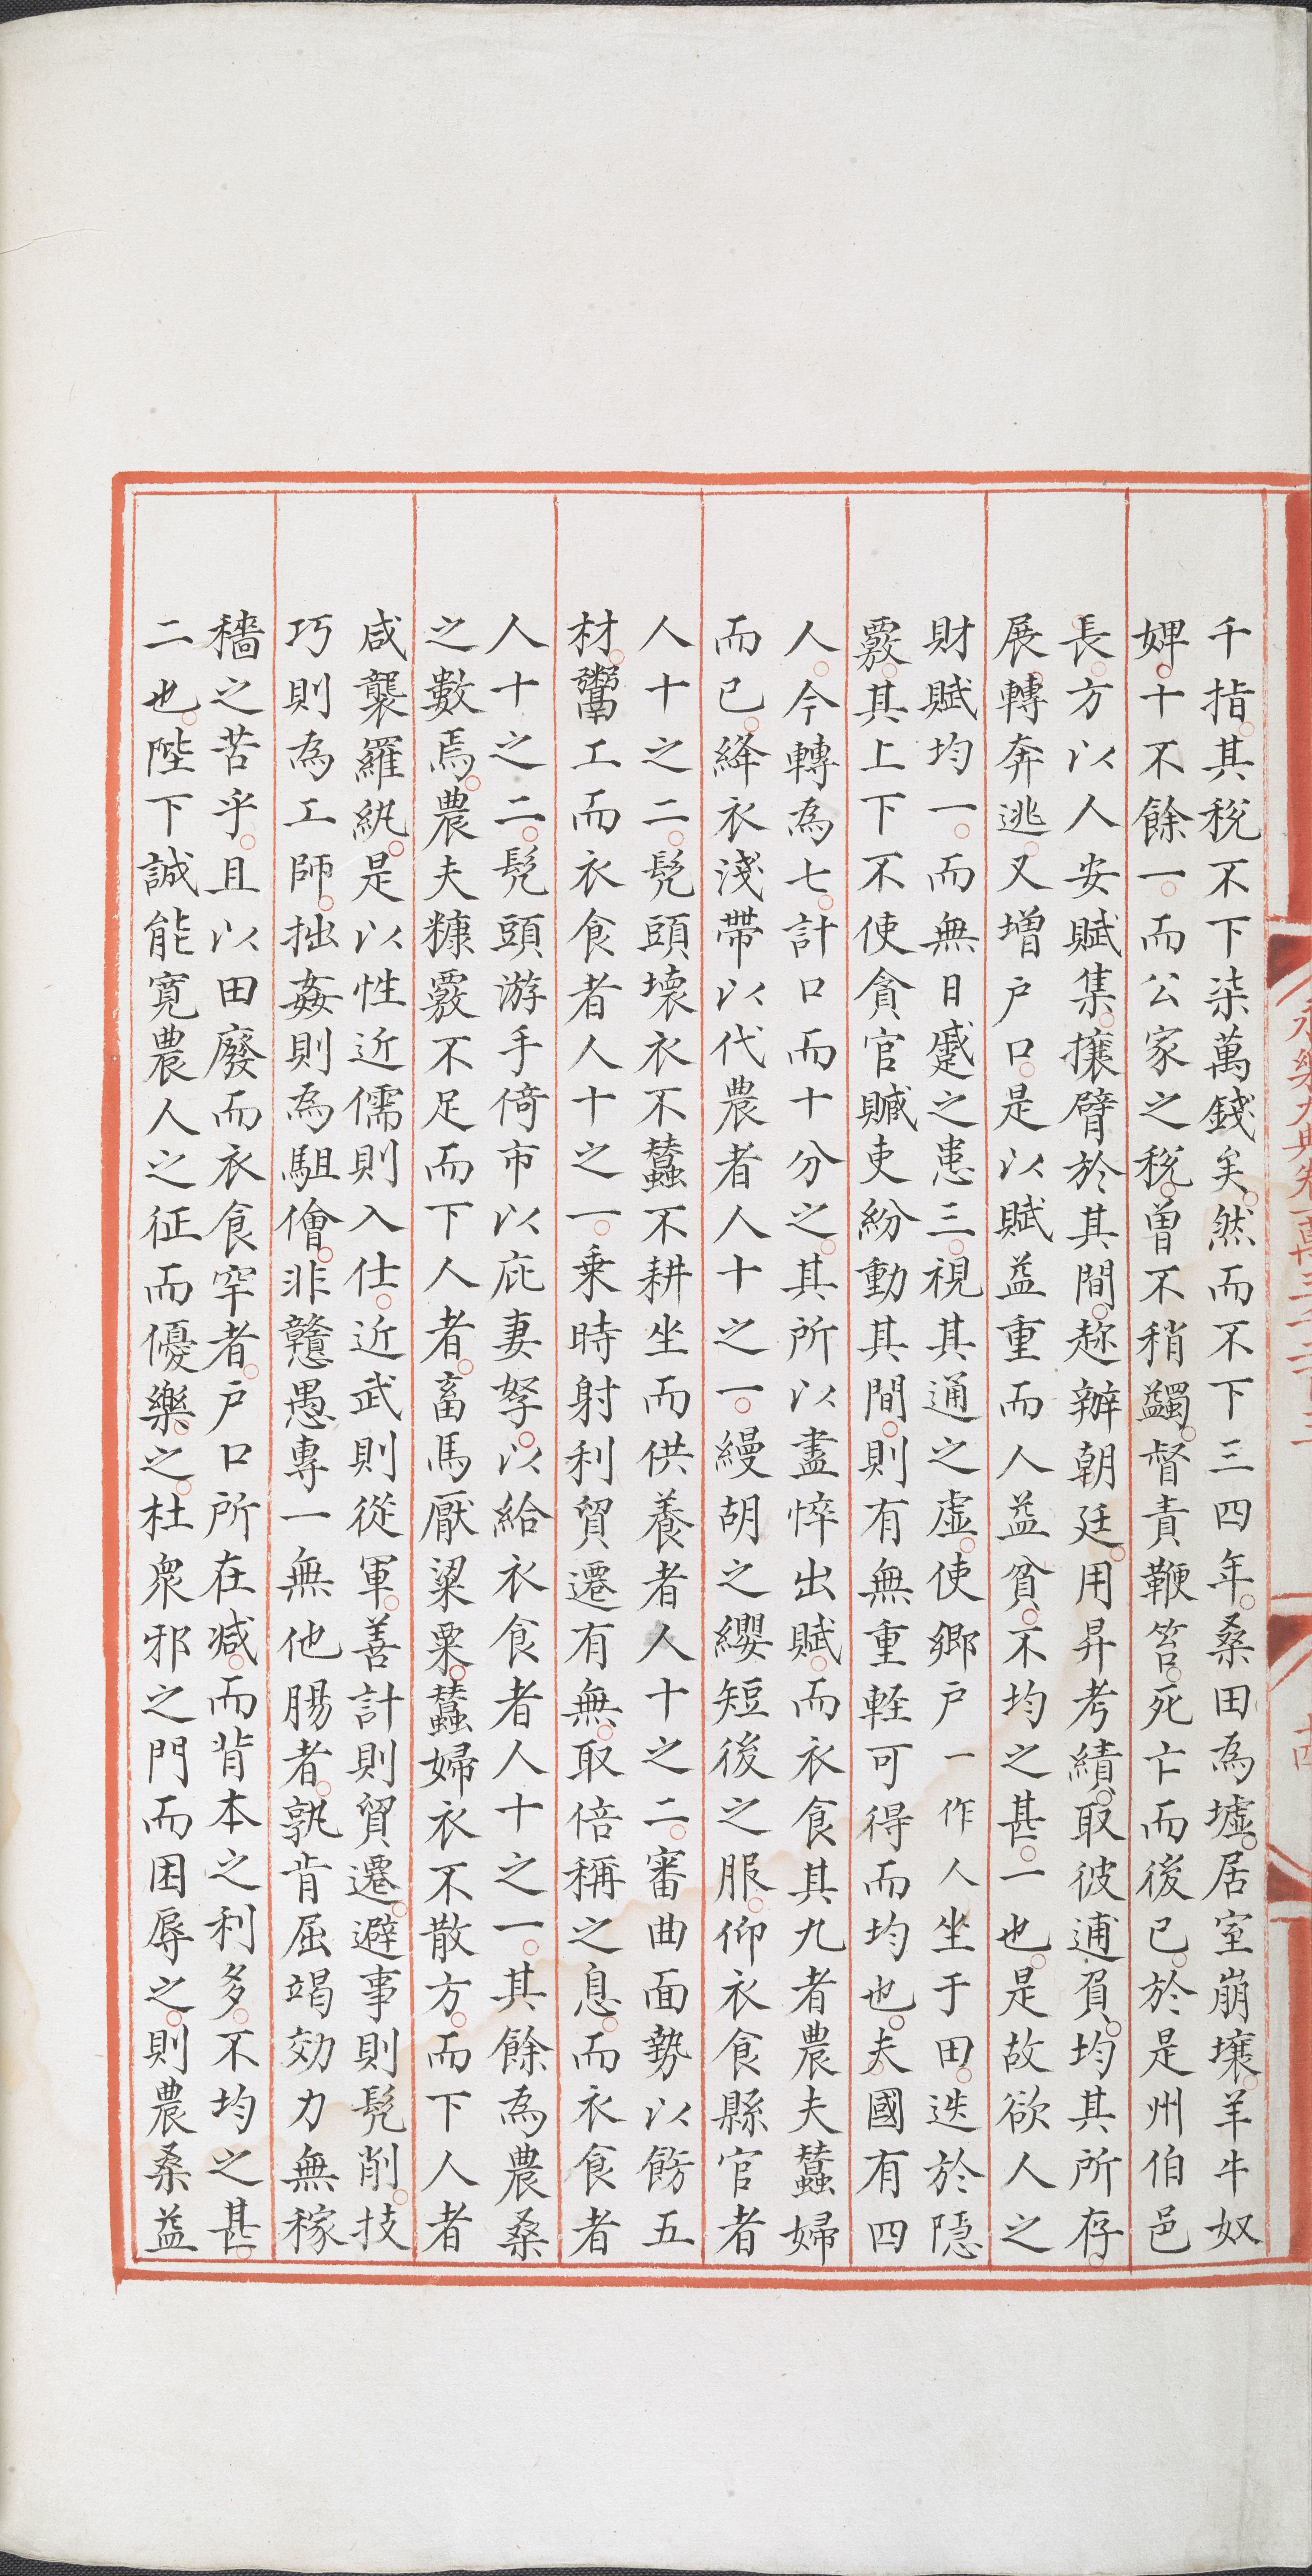 千指其稅不下柒萬錢矣然而不下三四年桑田為墟居室崩壤羊牛奴
婢十不餘一而公家之稅曾不稍蠲督責鞭笞死亡而後已於是州伯邑
長方以人安賦集攘臂於其間趍辦朝廷用昇考績取彼逋負均其所存
展轉奔逃又增户口是以賦益重而人益貧不均之甚一也是故欲人之
財賦均一而無日蹙之患三視其通之虛使鄉户一作人坐于田迭於隠
覈其上下不使貪官贓吏紛動其間則有無重輕可得而均也夫國有四
人今轉為七計口而十分之其所以盡悴出賦而衣食其九者農夫蠶婦
而已絳衣淺帶以代農者人十之一縵胡之纓短後之服仰衣食縣官者
人十之二髡頭壊衣不蠶不耕坐而供養者人十之二審曲面勢以飭五
材鬻工而衣食者人十之一乗時射利貿遷有無取倍稱之息而衣食者
人十之二髡頭游手倚市以庇妻孥以給衣食者人十之一其餘為農桑
之數焉農夫糠覈不足而下人者畜馬厭粱粟蠶婦衣不散方而下人者
咸襲羅紈是以性近儒則入仕近武則從軍善計則貿遷避事則髡削技
巧則為工師拙姦則為駔儈非戇愚專一無他腸者孰肯屈竭効力無稼
穡之苦乎且以田廢而衣食罕者户口所在减而背本之利多不均之甚
二也陛下誠能寛農人之征而優樂之杜衆邪之門而困辱之則農桑益
永樂大典卷一萬三千二百三